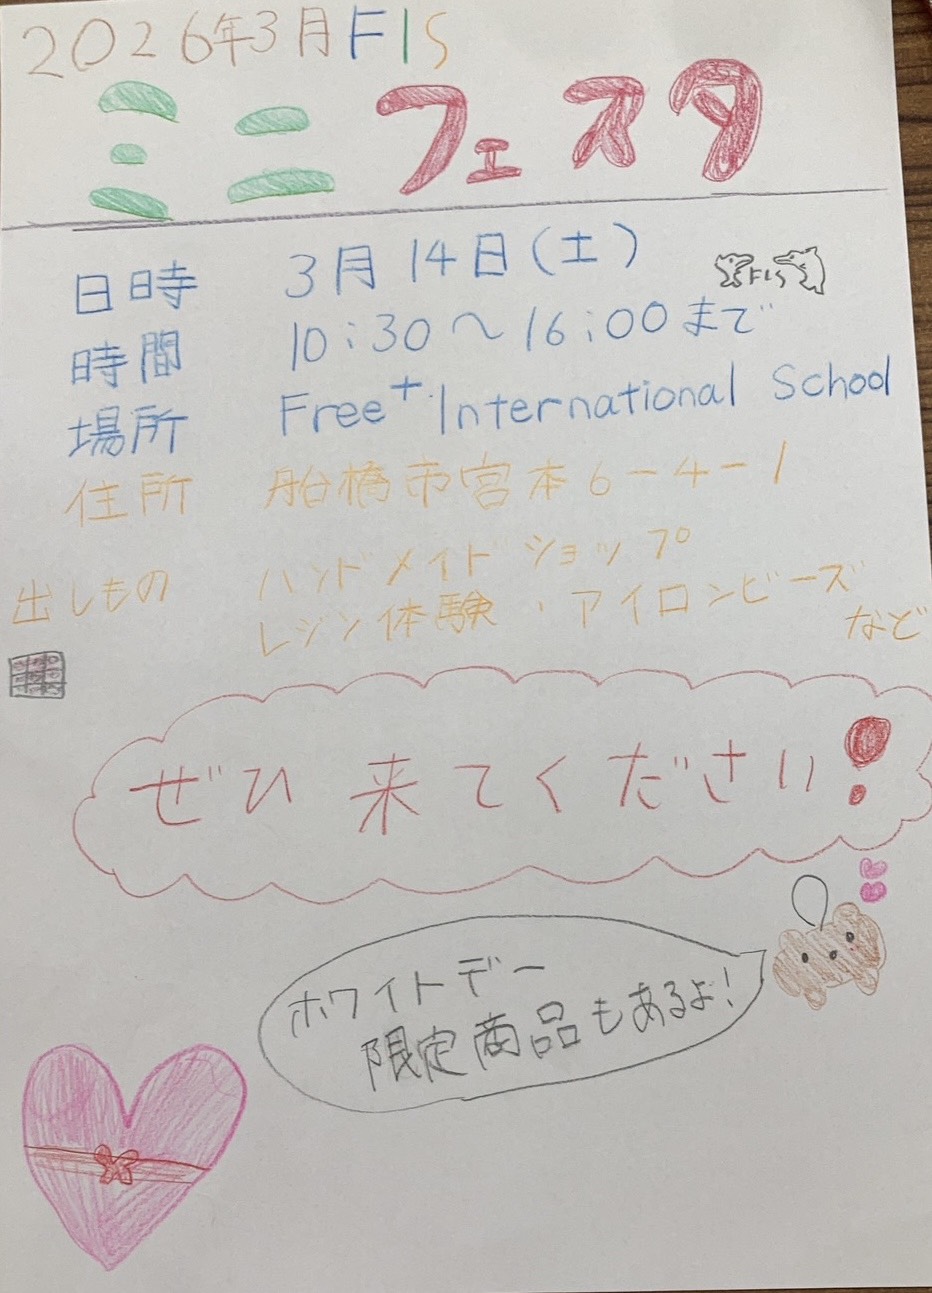 2026年3月FIS
ミニフェスタ
日時 3月14日(土)
FIS
時間 10:30〜16:00まで
場所 Free⁺International School
住所 船橋市宮本6-4-1
出しもの ハンドメイドショップ
レジン体験・アイロンビーズ
など
ぜひ来てください!
ホワイトデー
限定商品もあるよ!